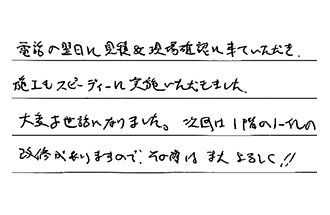 電話の翌日に見積&現場確認に来ていただき、
施工もスピーディーに実施いただきました。
大変お世話になりました。次回は1階のトイレの
改修がありますので、その時は またよろしく!!